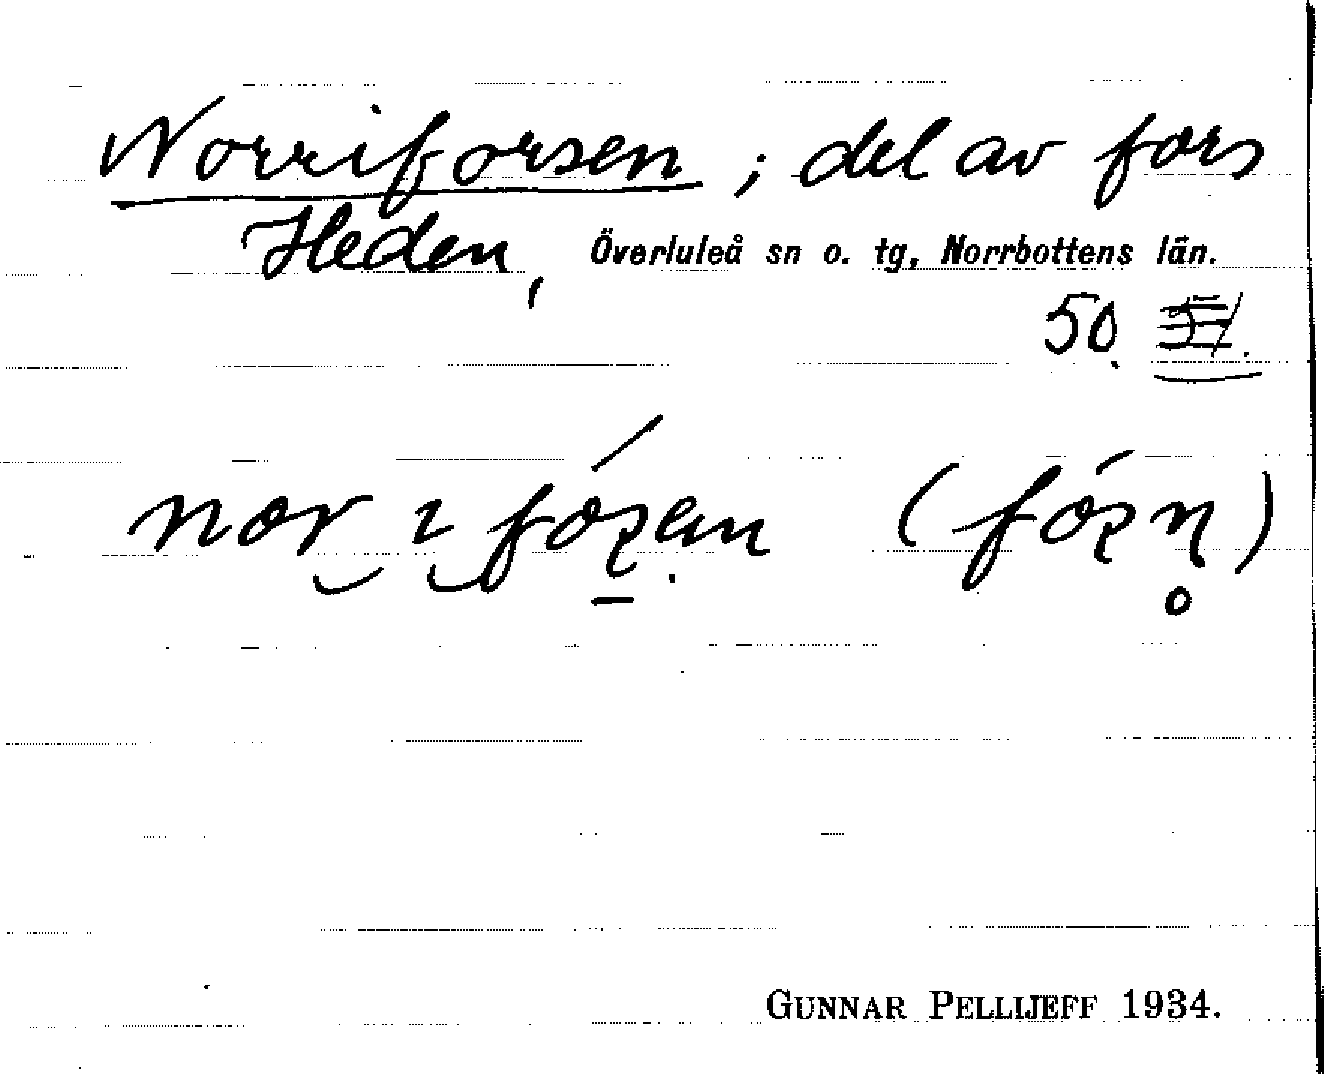 Norriforsen ; del av fors
Heden, Överluleå sn o. tg, Norrbottens län.
50. 51.
nor ı fóʂen (fóʂn̥)
GUNNAR PELLIJEFF 1934.